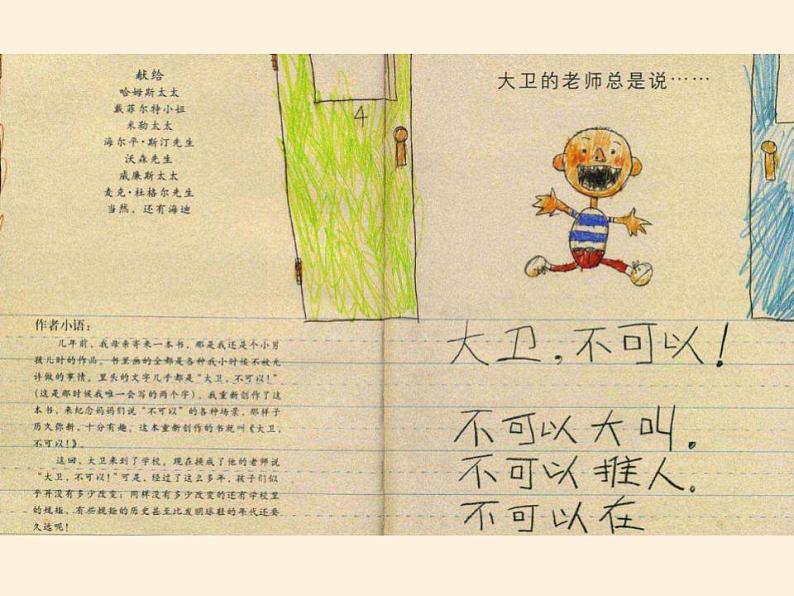 献给
哈姆斯太太
戴菲尔特小姐
米勒太太
海尔平·斯汀先生
沃森先生
威廉斯太太
麦克·杜格尔先生
当然，还有海迪
作者小语：
几年前，我母亲寄来一本书，那是我还是个小男
孩儿时的作品。书里画的全都是各种我小时候不被允
许做的事情，里头的文字几乎都是“大卫，不可以！”
（这是那时候我唯一会写的两个字）。我重新创作了这
本书，来纪念妈妈们说“不可以”的各种场景，那样子
历久弥新，十分有趣。这本重新创作的书就叫《大卫，
不可以！》。
这回，大卫来到了学校。现在换成了他的老师说
“大卫，不可以！”可是，经过了这么多年，孩子们似
乎并没有多少改变；同样没有多少改变的还有学校里
的规矩，有些规矩的历史甚至比发明球鞋的年代还要
久远呢！
4
大卫的老师总是说……
大卫，不可以！
不可以大叫。
不可以推人。
不可以在